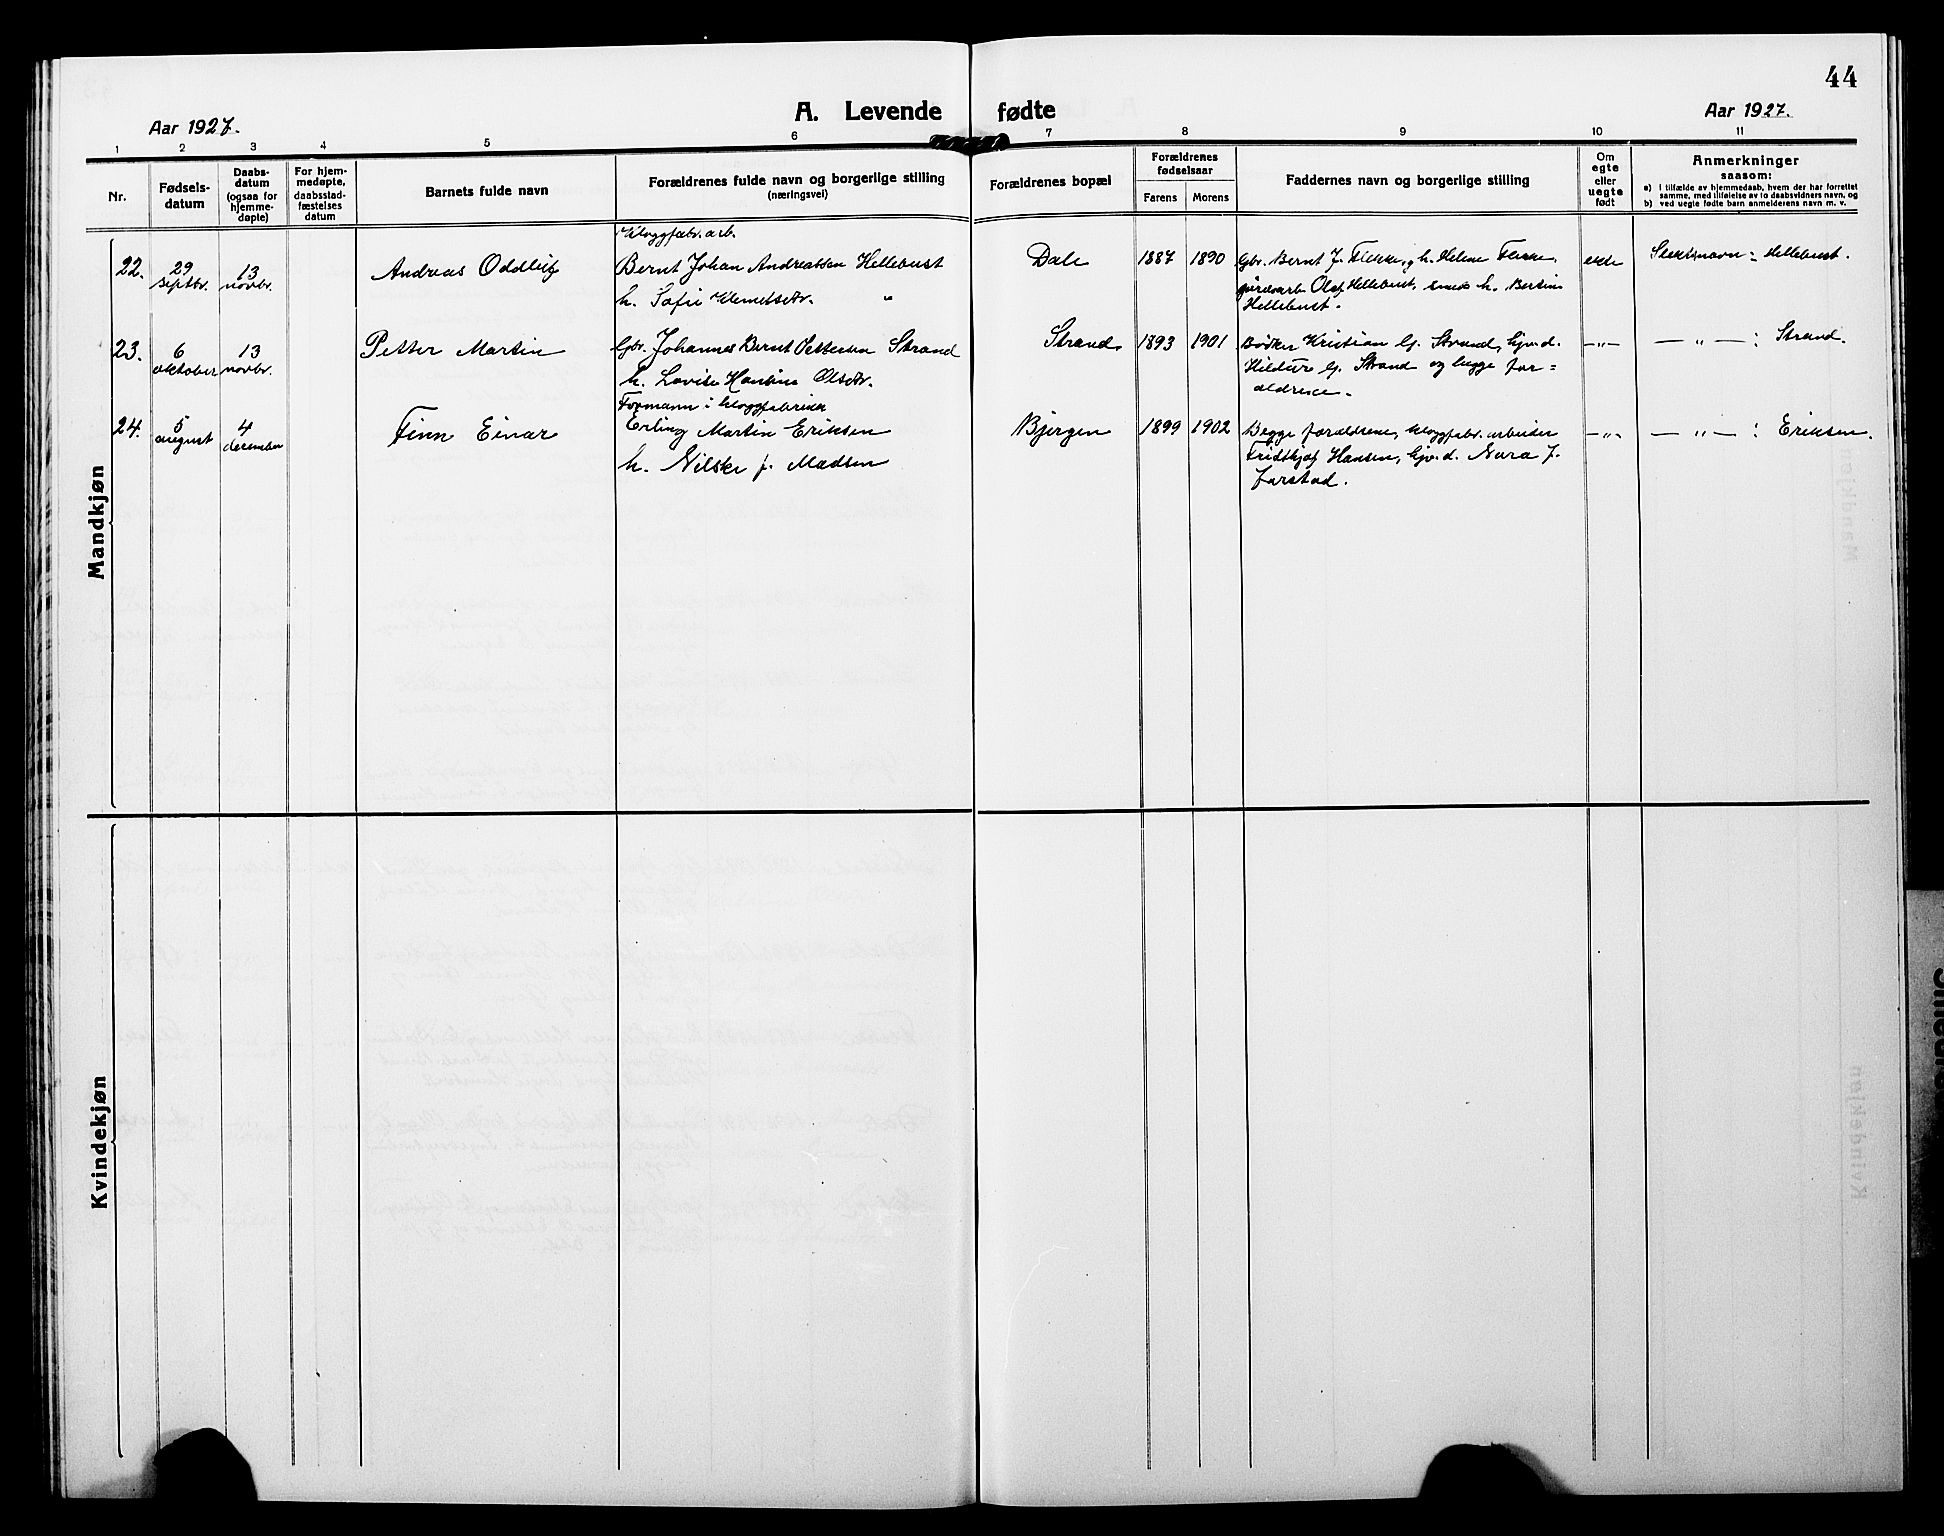 44
A. Levende fødte
Aar 1927.
Aar 1927.
1 2 3 4 5 6 7 8 9 10 11
Nr.
Fødsels-
datum
Daabs-
datum
(ogsaa for
hjemme-
døpte)
For hjem-
medøpte,
daabsstad-
fæstelses
datum
Barnets fulde navn
Forældrenes fulde navn og borgerlige stilling
(næringsvei)
Forældrenes bopæl
Forældrenes
fødselsaar
Farens Morens
Faddernes navn og borgerlige stilling
Om
egte
eller
uegte
født
Anmerkninger
saasom:
a) i tilfælde av hjemmedaab, hvem der har forrettet
samme, med tilføielse av to daabsvidners navn, og
b) ved uegte fødte barn anmelderens navn m. v.
Mandkjøn
22.
29
septbr.
13
novbr.
Andreas Oddleig
kloggfabr. arb.
Bernt Johan Andreassen Hellebust
h. Sofie Klemetsdr. "
Dale
1887 1890
Gbr. Bernt J. Flekke, g h. Helene Flekke,
Olaf Hellebust, h. Bertine
Hellebust.
ekte
Slektsnavn: Hellebust.
23.
6
oktober
13
novbr.
Petter Martin
Gbr. Johannes Bernt Pettersen Strand
h. Lovise Hansine Olsdr.
Strand
1893 1901
Bødker Kristian G. Strand, hjv. d.
Hildur G. Strand og begge for=
ældrene.
—„—
— „ — : Strand.
24.
5
august
4
december
Finn Einar
Formann i kloggfabrikk
Erling Martin Eriksen
h. Nilske f. Madsen
Bjørgen
1899 1902
Begge forældrene, kloggfabr. arbeider
Fridthjof Hansen, hjv. d. Nora J.
Farstad.
—„—
— „ — : Eriksen.
Kvindekjøn